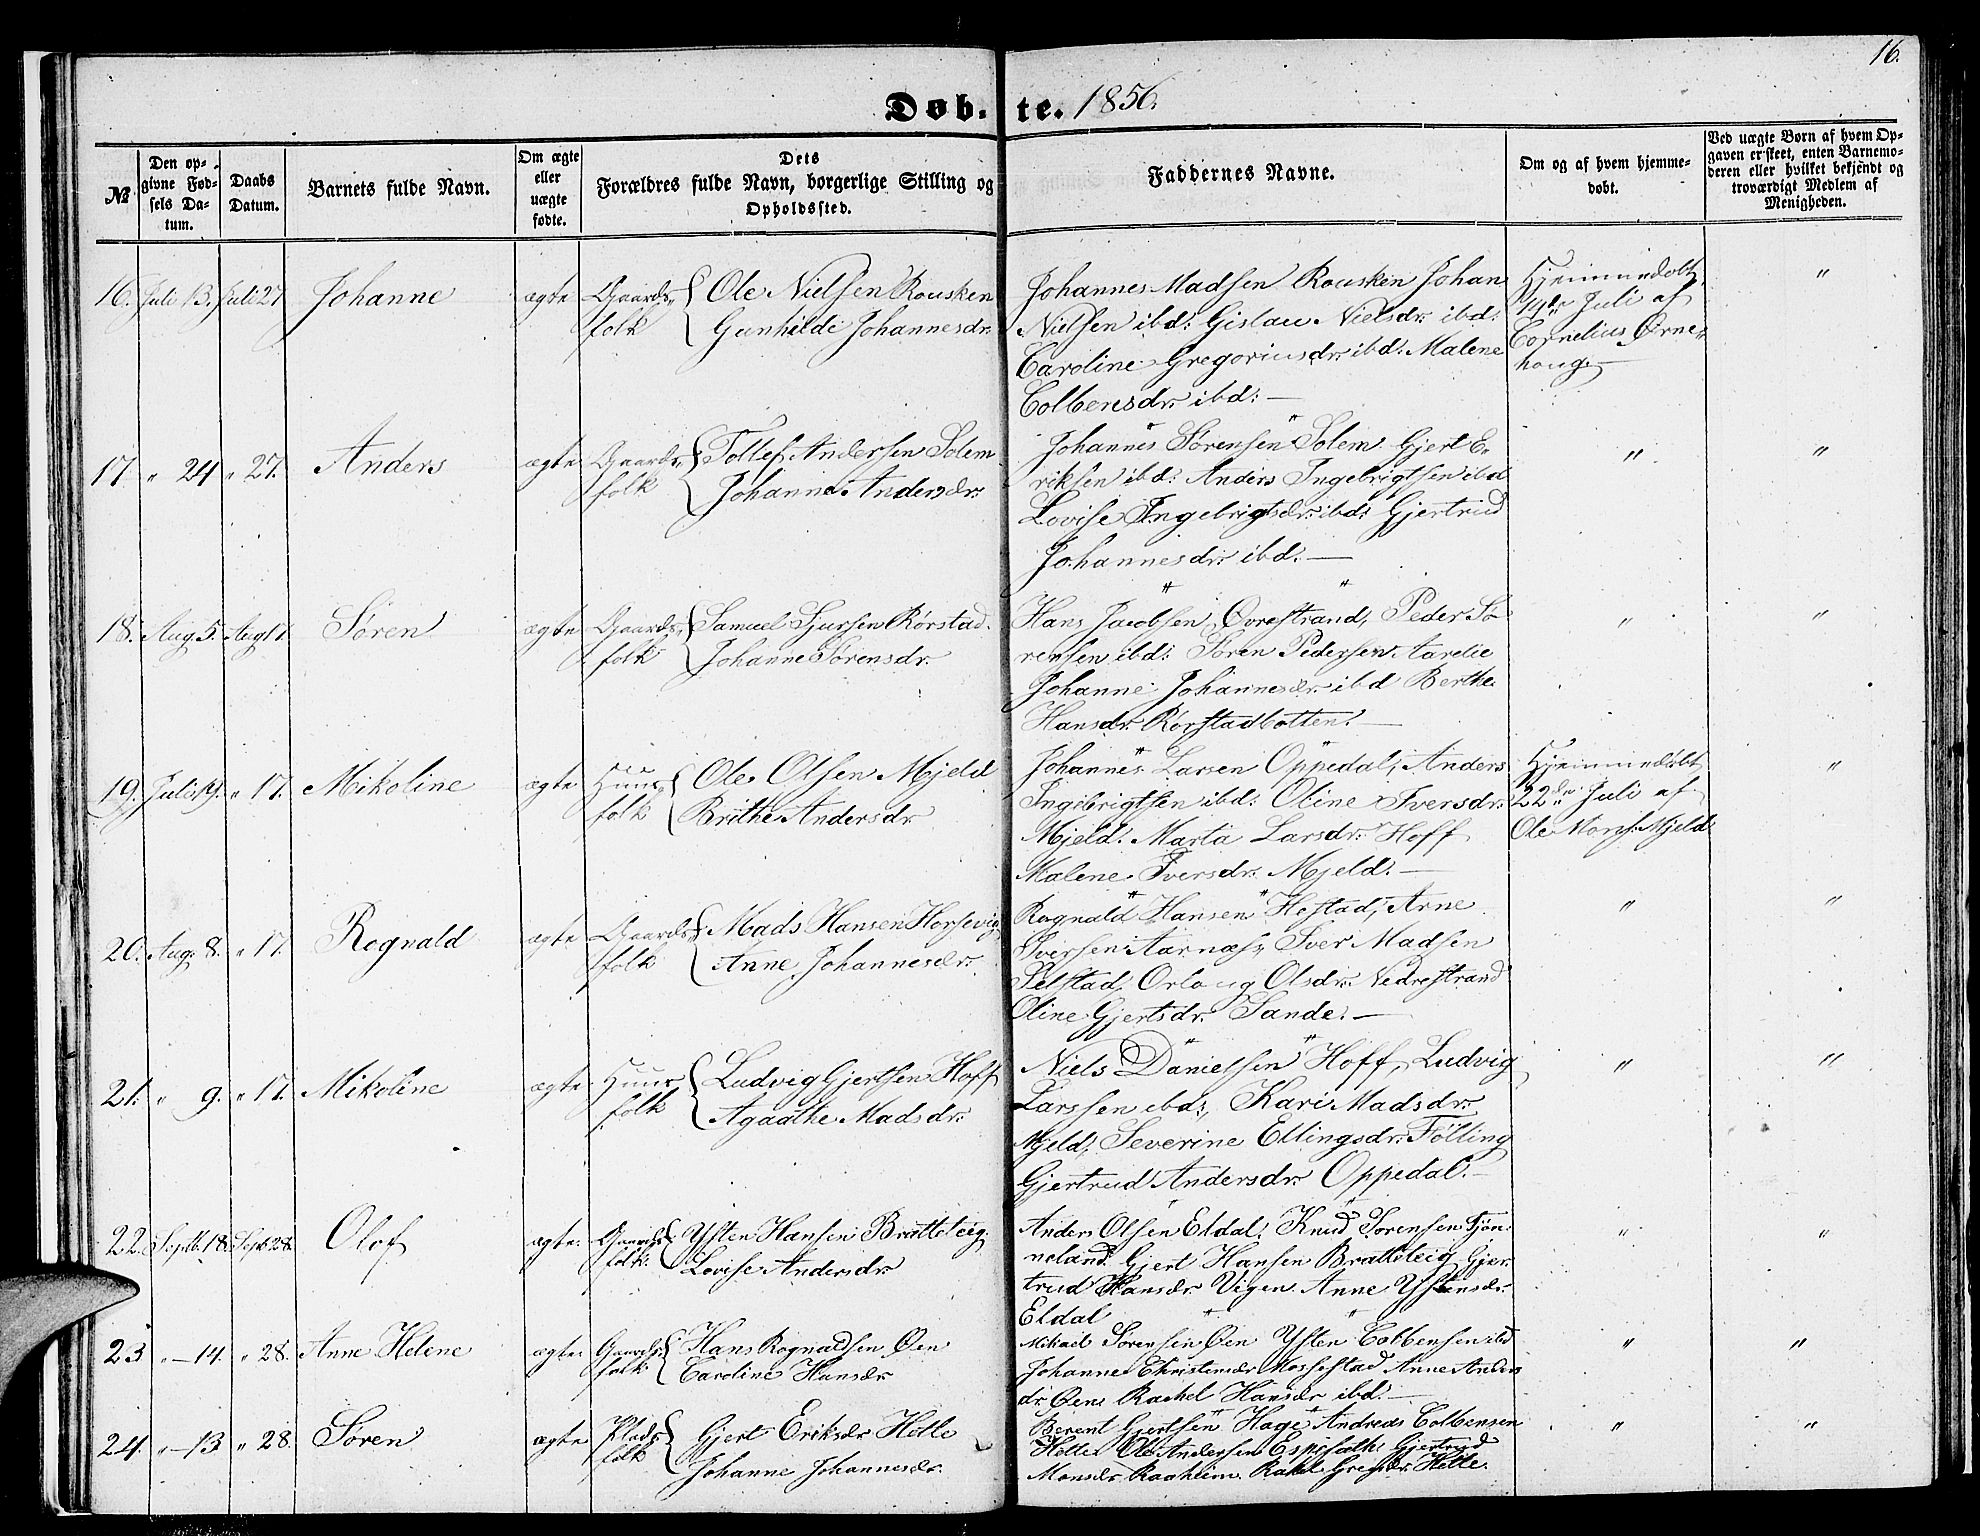 16.
Døb- te. 1856.
№
Den opgivne Fødsels Datum.
Daabs Datum.
Barnets fulde Navn.
Om ægte eller uægte fødte.
Dets Forældres fulde Navn, borgerlige Stilling og Opholdssted.
Faddernes Navne.
Om og af hvem hjemmedøbt.
Ved uægte Børn af hvem Opgaven er skeet, enten Barnemoderen eller hvilket bekjendt og troværdigt Medlem af Menigheden.
16. Juli 13. Juli 27 Johanne ægte Gaards- folk Ole Nielsen Rousken
Gunhilde Johannesdr.
Johannes Madsen Rousken Johan
Nielsen ibd: Gislau Nielsdr. ibd:
Caroline Gregoriusdr. ibd. Malene
Colbensdr. ibd: —
Hjemmedøbt
19de Juli af
Cornelius Ørne-
houg. —
"
17. " 24 " 27. Anders ægte Gaards- folk Tollef Andersen Solem
Johanne Andersdr.
Johannes Sørensen Solem Gjert E-
riksen ibd: Anders Ingebrigtsen ibd
Lovise Ingebrigtsdr. ibd: Gjertrud
Johannesdr. ibd. —
" "
18. Aug. 5. Aug 17. Søren ægte Gaards- folk Samuel Sjursen Rørstad.
Johanne Sørensdr.
Hans Jacobsen Øvrestrand, Peder Sø-
rensen ibd: Søren Pedersen Aarelie
Johanne Johannesdr. ibd Berthe
Hansdr. Rørstadbotten. —
" "
19. Juli 19. " 17. Mikoline ægte Huus- folk Ole Olsen Mjeld
Brithe Andersdr
Johannes Larsen Oppedal, Anders
Ingebrigtsen ibd: Oline Iversdr.
Mjeld. Marta Larsdr. Hoff
Malene Iversdr. Mjeld. —
Hjemmedøbt
22de Juli af
Ole Mons. Mjeld
"
20. Aug. 8. " 17. Rognald ægte Gaards- folk Mads Hansen Horsevig
Anne Johannesdr.
Rognald Hansen Hestad, Arne
Iversen Aarnæs, Iver Madsen
Pelstad, Orloug Olsdr. Nedrestrand
Oline Gjertsdr. Sande. —
" "
21. " 9. " 17. Mikoline ægte Huus folk Ludvig Gjertsen Hoff
Agaathe Madsdr.
Niels Danielsen Hoff, Ludvig
Larssen ibd:, Kari Madsdr.
Mjeld, Severine Ellingsdr. Følling
Gjertrud Andersdr. Oppedal. —
" "
22. Septb. 18. Septb 28. Olof ægte Gaards- folk. Ysten Hansen Bratteteig.
Lovise Andersdr.
Anders Olsen Eldal. Knud Sørensen Tjøn-
neland Gjert Hansen Bratteteig Gjer-
trud Hansdr. Vigen Anne Ystensdr.
Eldal
" "
23 " — 14. " 28. Anne Helene ægte Gaards- folk Hans Rognaldsen Øen
Caroline Hansdr
Mikael Sørensen Øen Ysten Cobbensen ibd
Johanne Christensdr Mossestad Anne Anders
dr. Øens Rachel Hansdr ibd. —
" "
24. " — 13 " 28. Søren ægte Plads folk Gjert Eriksdr Helle
Johanne Johannesdr.
Berent Gjertsen Hage Andreas Colbensen
Helle Ole Andersen Espesæth Gjertrud
Monsdr. Raaheim Rakel Gregdr. Helle.
" "